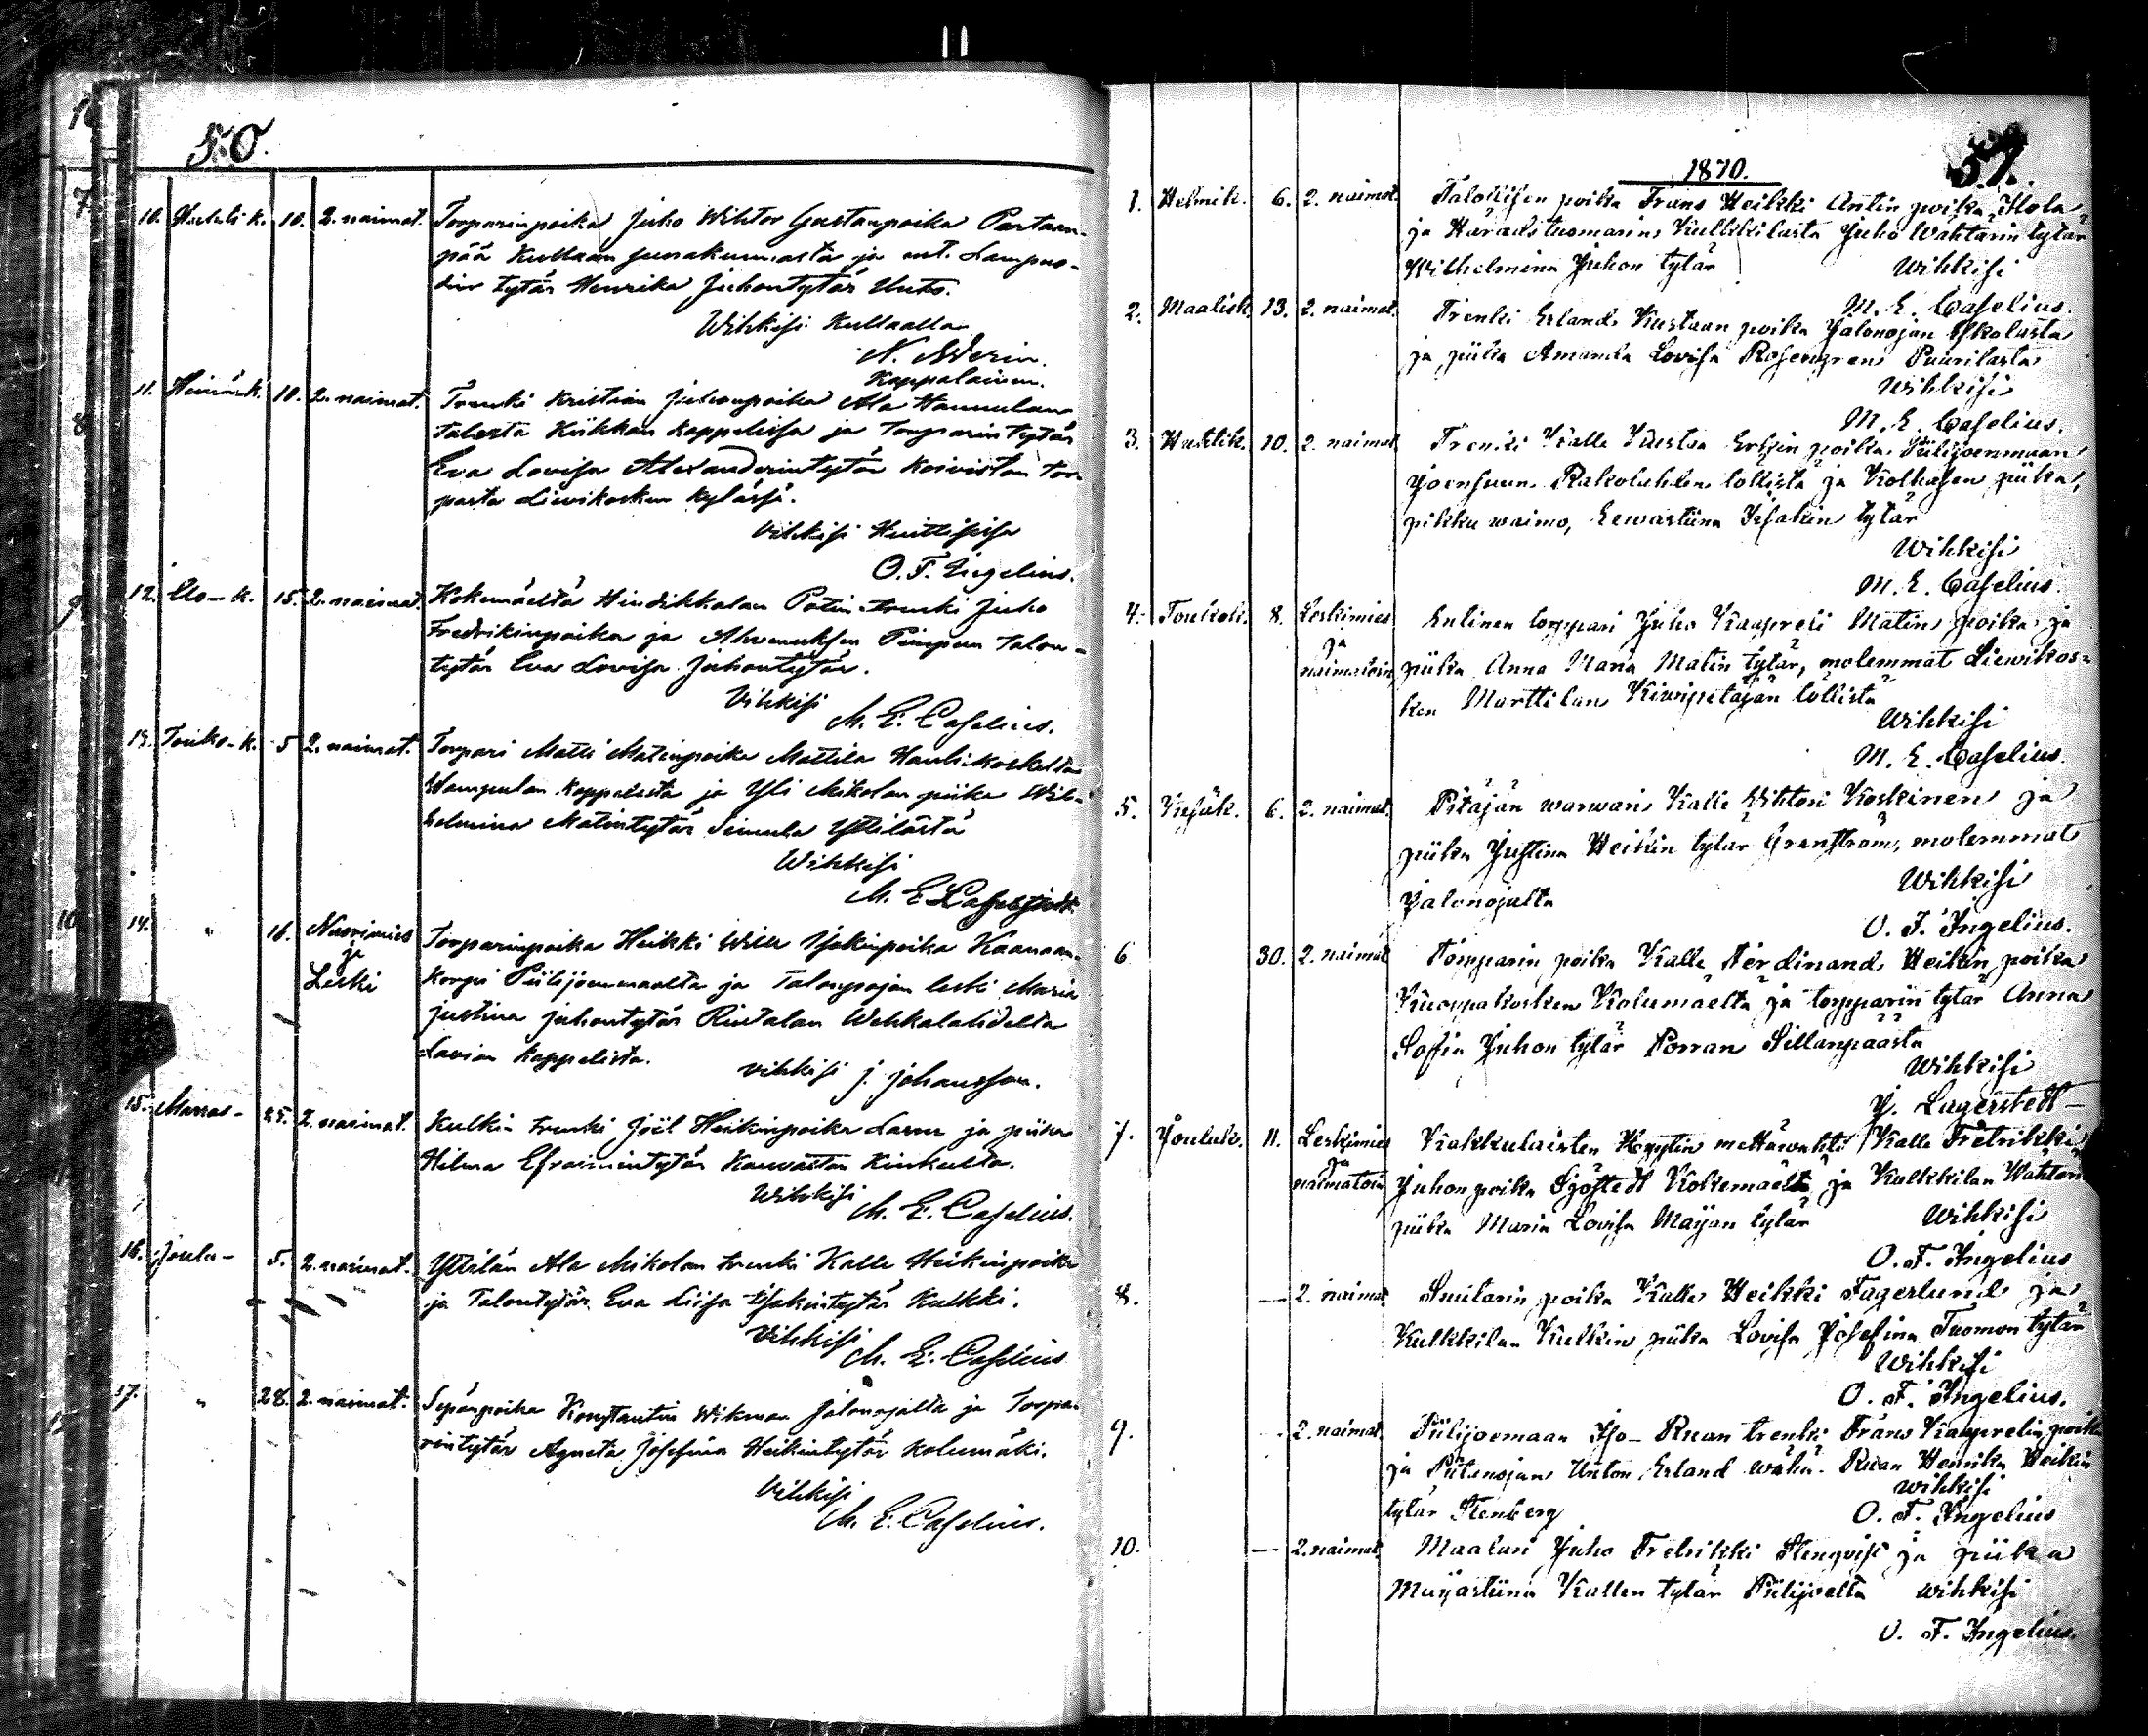 50.
10. Huhti k. 10. 2. naimat. Torparinpoika Juho Wihtor Gustaanpoika Partaan-
pää Kullaan seurakunnasta ja ent. Lampuo-
din tytär Henrika Juhontytär Unto.
Wihkisi Kullaalla
N. Kappalainen.
11. Heinäk. 10. 2. naimat. Trenki Kristian Juhonpoika Ala Hannulan
talosta Kiikkan kappelissa ja Torparintytär
Eva Lovisa Alexanderintytär Koiviston tor-
pasta Lievikosken kylässä.
Vihkisi Huittisissa
O. F. Ingelius.
12. Elo-k. 15. 2. naimat. Kokemäeltä Hindikkalan Potin trenki Juho
Fredrikinpoika ja Ahvenuksen Pimpun talon-
tytär Eva Lovisa Juhontytär.
Vihkisi
M. E. Caselius.
13. Touko-k. 5 2. naimat. Torpari Matti Matinpoika Mattila Hanhikoskelta
Wampulan kappelista ja Yli Mikolan piika Wil-
helmina Matintytär Simula Yttilästä
Wihkisi
M. E.
14. " 16. Nuorimies Torparinpoika Heikki Wille Isakinpoika Kaanaan-
ja
Leski korpi Piilijoenmaalta ja Talonpojan leski Maria
Justina Juhontytär Rintalan Wehkalahdelta
Lavian kappelista.
vihkisi J. Johansson.
15. Marras- 25. 2. naimat. Kulkin trenki Joel Heikinpoika Lassu ja piika
Hilma Efraimintytär Kauvatsan Kinkuelta.
Wihkisi
M. E. Caselius.
16. Joulu- 5. 2. naimat. Yttilän Ala Mikolan trenki Kalle Heikinpoika
ja Talontytär Eva Liisa Isakintytär Kulkki.
Vihkisi
M. E. Caselius
17. " 28. 2. naimat. Sepänpoika Konstantin Wikman Jalonojalta ja Torpa-
rintytär Agneta Josefina Heikintytär Kolumäki.
Vihkisi
M. E. Caselius.
57.
1870.
1. Helmik. 6. 2. naimat. Talokisen poika Frans Heikki Antin poika Ilola
ja Häradstuomarin Kulkkilasta Juho Wahtarin tytär
Wilhelmina Juhon tytär Wihkisi
M. E. Caselius.
2. Maalisk. 13. 2. naimat. Trenki Erland Kustaan poika Jalonojan Eskolasta
ja piika Amanda Lovisa Rosengren Puurilasta
Wihkisi
M. E. Caselius.
3. Huhtik. 10. 2. naimat. Trenki Kalle Kustaa Erkin poika Piilijoenmaan
Joensuun Rakolahden löllistä ja Kolkasen piika,
pikku waimo, Eewastiina Isakin tytär
Wihkisi
M. E. Caselius.
4. Toukok. 8. Leskimies Entinen torppari Juho Kaapreli Matin poika ja
ja
naimatoin piika Anna Maria Matin tytär, molemmat Liewikos-
ken Marttilan Kivenpetäjän löllistä
Wihkisi
M. E. Caselius.
5. Kesäk. 6. 2. naimat. Pitäjän warwari Kalle Wihtori Koskinen ja
piika Justina Heikin tytär Granström, molemmat
Jalonojalta Wihkisi
O. F. Ingelius.
6 30. 2. naimat Torpparin poika Kalle Ferdinand Heikin poika
Kuoppakosken Kolumäeltä ja torpparin tytär Anna
Sofia Juhon tytär Porran Sillanpäästä
Wihkisi
J. Lagerstedt
7. Jouluk. 11. Leskimies Kakkulaisten Köpytin mettäwahti Kalle Fretrikki
ja
naimatoin Juhon poika Sjöstedt Kokemäeltä ja Kulkkilan Wahtarin
piika Maria Lovisa Maijan tytär Wihkisi
O. F. Ingelius
8. — 2. naimat. Suutarin poika Kalle Heikki Fagerlund ja
Kulkkilan Kulkin piika Lovisa Josefina Tuomon tytär
Wihkisi
O. F. Ingelius.
9. 2. naimat. Piilijoemaan Iso-Ruan trenki Frans Kaaprelin poika
ja Piitanojan Unton Erland wähä-Ruan Henrika Heikin
wihkisi
tytär Stenberg O. F. Ingelius
10. — 2. naimat. Maalari Juho Fretrikki Stenqvist ja piika
Maijastiina Kallen tytär Piilijoelta wihkisi
O. F. Ingelius.